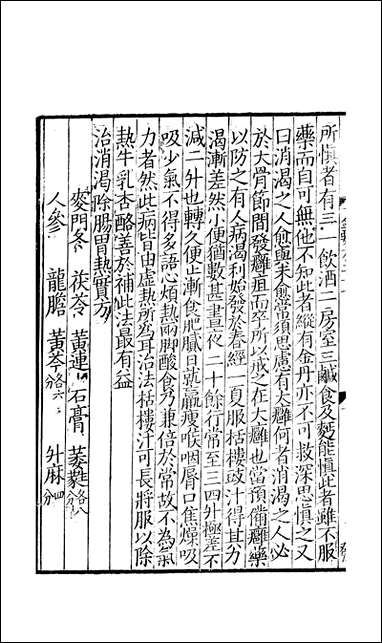 所慎者有三一飲酒二房室三鹹食及麪能慎此者雖不服
藥而自可無他不知此者縱有金丹亦不可救深思慎之又
曰消渴之人愈與未愈常須思慮有大癰何者消渴之人必
於大骨節間發癰疽而卒所以戒之在大癰也當預備癰藥
以防之有人病渴利始發於春經一夏服栝樓豉汁得其力
渴漸差然小便猶數甚晝夜二十餘行常至三四升極差不
減二升也轉久便止漸食肥膩日就羸瘦喉咽唇口焦燥吸
吸少氣不得多語心煩熱兩脚酸食乃兼倍於常故不為氣
力者然此病皆由虛熱所為耳治法栝樓汁可長將服以除
熱牛乳杏酪善於補此法最有益
治消渴除腸胃熱實方
麥門冬 茯苓 黃連 石膏 萎蕤各八分
人參 龍膽 黃芩各六分 升麻四分